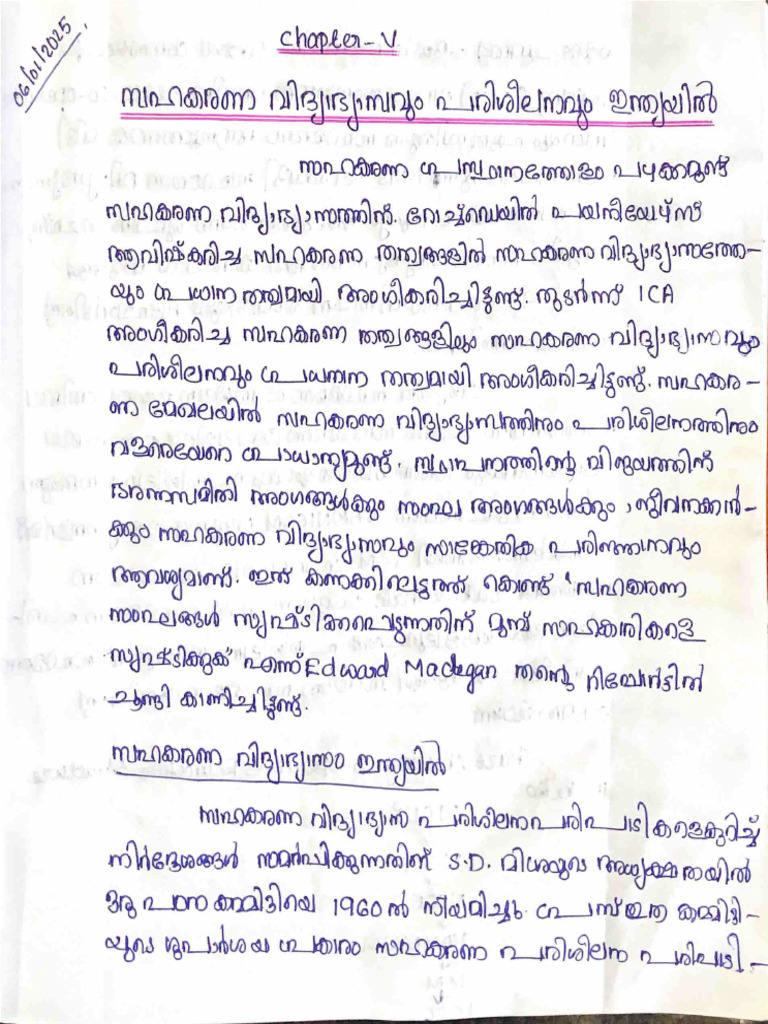 06/01/2025
Chapter-V
സഹകരണ വിദ്യാഭ്യാസവും പരിശീലനവും ഇന്ത്യയിൽ
സഹകരണ പ്രസ്ഥാനത്തോളം പഴക്കമുണ്ട്
സഹകരണ വിദ്യാഭ്യാസത്തിന്. റോച്ച്ഡെയിൽ പയനീയേഴ്സ്
ആവിഷ്കരിച്ച സഹകരണ തത്വങ്ങളിൽ സഹകരണ വിദ്യാഭ്യാസത്തേ-
യും പ്രധാന തത്വമായി അംഗീകരിച്ചിട്ടുണ്ട്. തുടർന്ന് ICA
അംഗീകരിച്ച സഹകരണ തത്വങ്ങളിലും സഹകരണ വിദ്യാഭ്യാസവും
പരിശീലനവും പ്രധാന തത്വമായി അംഗീകരിച്ചിട്ടുണ്ട്. സഹകര-
ണ മേഖലയിൽ സഹകരണ വിദ്യാഭ്യാസത്തിനും പരിശീലനത്തിനും
വളരെയേറെ പ്രാധാന്യമുണ്ട്. സ്ഥാപനത്തിന്റെ വിജയത്തിന്
ഭരണസമിതി അംഗങ്ങൾക്കും സംഘ അംഗങ്ങൾക്കും, ജീവനക്കാർ-
ക്കും സഹകരണ വിദ്യാഭ്യാസവും സാങ്കേതിക പരിജ്ഞാനവും
ആവശ്യമാണ്. ഇത് കണക്കിലെടുത്ത് കൊണ്ട് "സഹകരണ
സംഘങ്ങൾ സൃഷ്ടിക്കപ്പെടുന്നതിന് മുമ്പ് സഹകാരികളെ
സൃഷ്ടിക്കുക" എന്ന് Edward Maclegan തന്റെ റിപ്പോർട്ടിൽ
ചൂണ്ടി കാണിച്ചിട്ടുണ്ട്.
സഹകരണ വിദ്യാഭ്യാസം ഇന്ത്യയിൽ
സഹകരണ വിദ്യാഭ്യാസ പരിശീലന പരിപാടികളെകുറിച്ച്
നിർദ്ദേശങ്ങൾ സമർപ്പിക്കുന്നതിന് S.D. മിശ്രയുടെ അദ്ധ്യക്ഷതയിൽ
ഒരു പഠന കമ്മിറ്റിയെ 1960 ൽ നിയമിച്ചു. പ്രസ്തുത കമ്മിറ്റി-
യുടെ ശുപാർശ പ്രകാരം സഹകരണ പരിശീലന പരിപാടി-